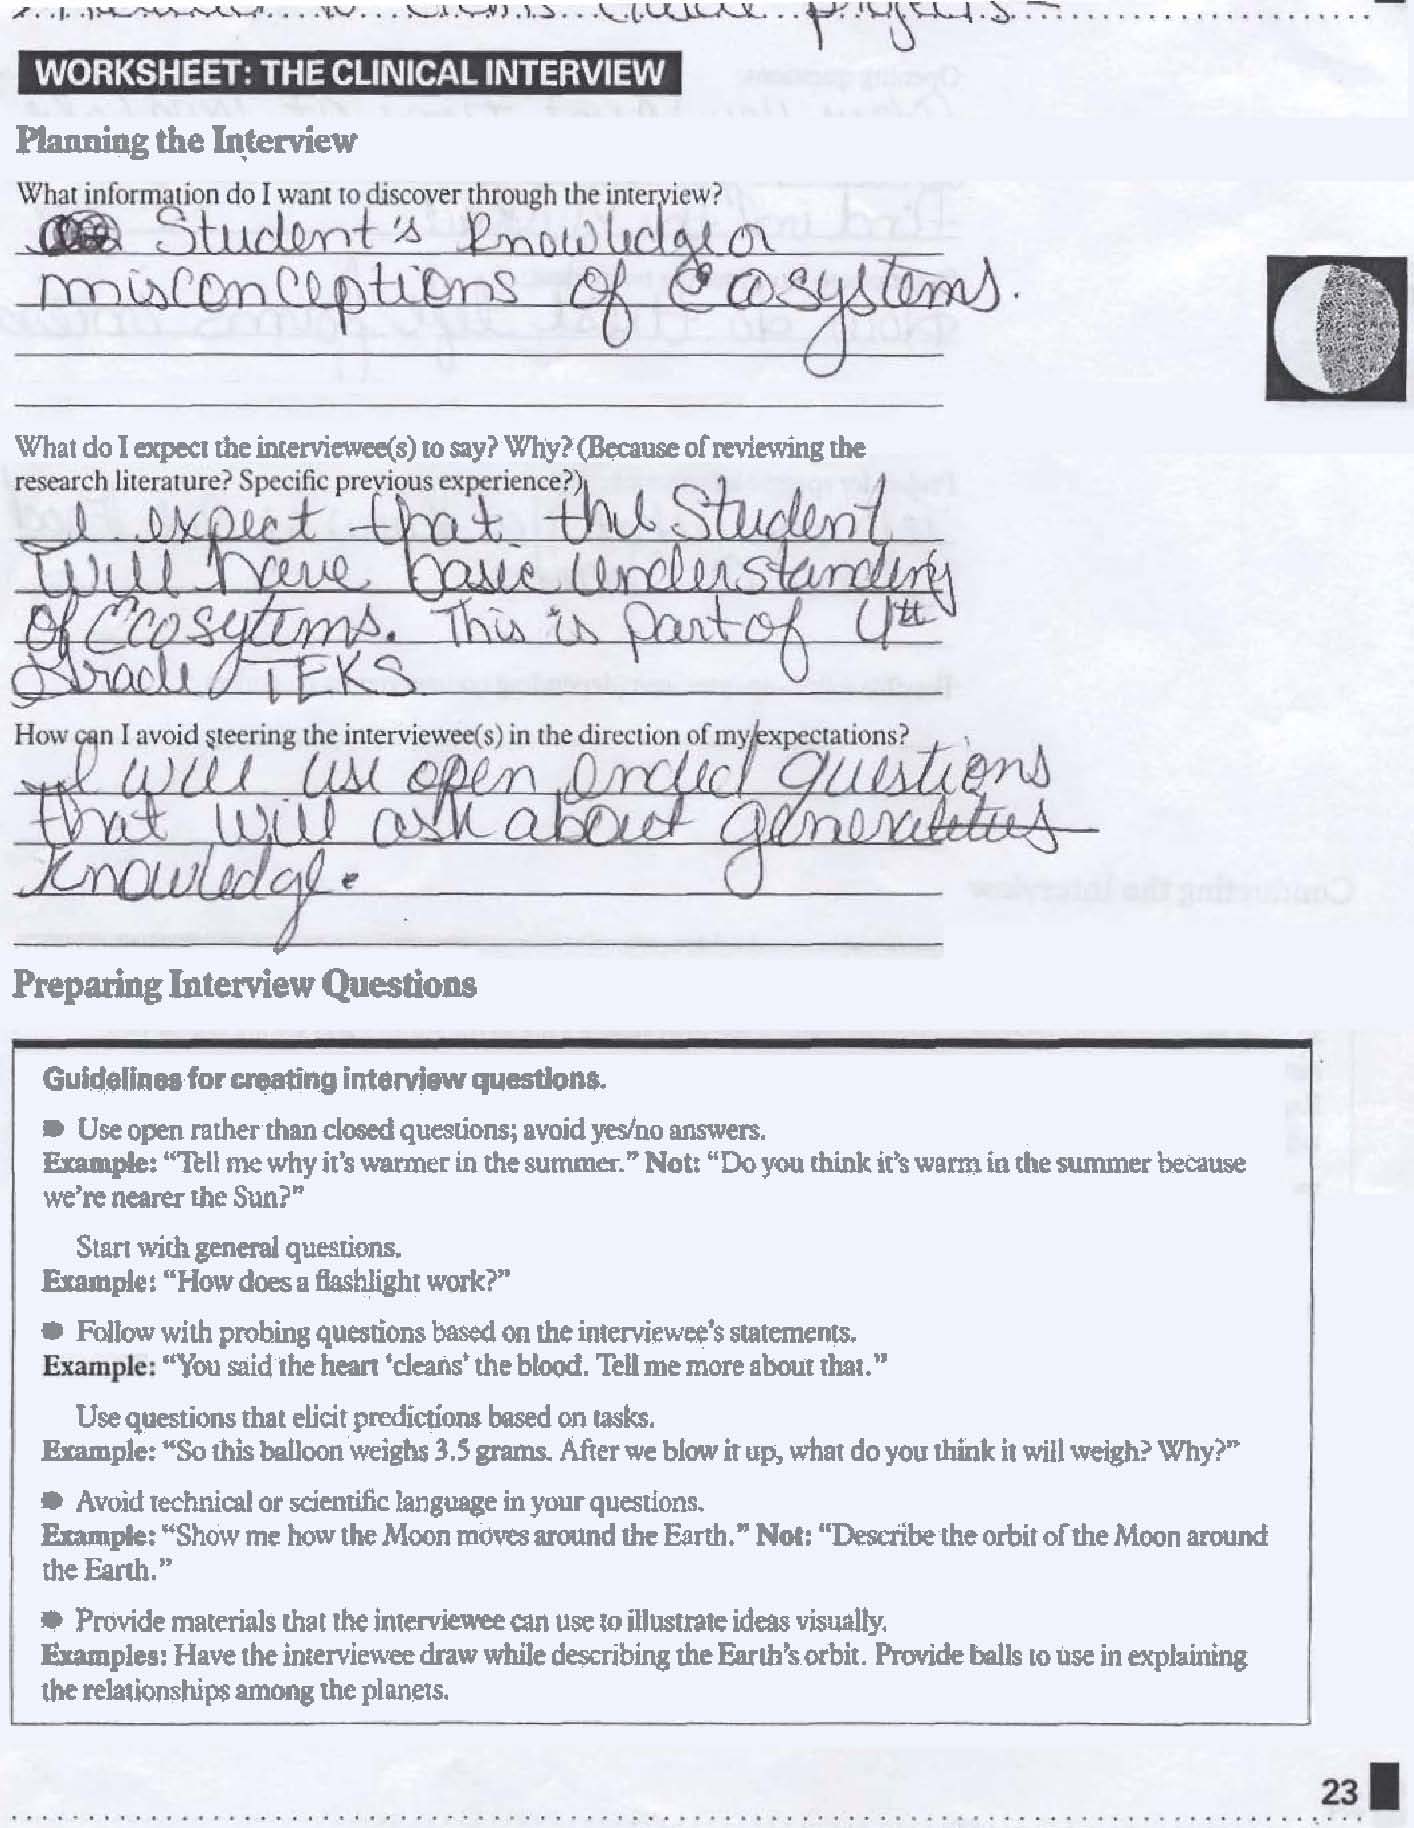 WORKSHEET: THE CLINICAL INTERVIEW
Planning the Interview
What information do I want to discover through the interview?
Student's knowledge or
misconceptions of Ecosystems.
What do I expect the interviewee(s) to say? Why? (Because of reviewing the
research literature? Specific previous experience?)
I expect that the Student
will have basic understanding
of Ecosytems. This is part of 4th
Grade TEKS.
How can I avoid steering the interviewee(s) in the direction of my expectations?
I will use open ended questions
that will ask about general
knowledge.
Preparing Interview Questions
Guidelines for creating interview questions.
Use open rather than closed questions; avoid yes/no answers.
Example: “Tell me why it’s warmer in the summer.” Not: “Do you think it’s warm in the summer because
we’re nearer the Sun?”
Start with general questions.
Example: “How does a flashlight work?”
Follow with probing questions based on the interviewee’s statements.
Example: “You said the heart ‘cleans’ the blood. Tell me more about that.”
Use questions that elicit predictions based on tasks.
Example: “So this balloon weighs 3.5 grams. After we blow it up, what do you think it will weigh? Why?”
Avoid technical or scientific language in your questions.
Example: “Show me how the Moon moves around the Earth.” Not: “Describe the orbit of the Moon around
the Earth.”
Provide materials that the interviewee can use to illustrate ideas visually.
Examples: Have the interviewee draw while describing the Earth’s orbit. Provide balls to use in explaining
the relationships among the planets.
23